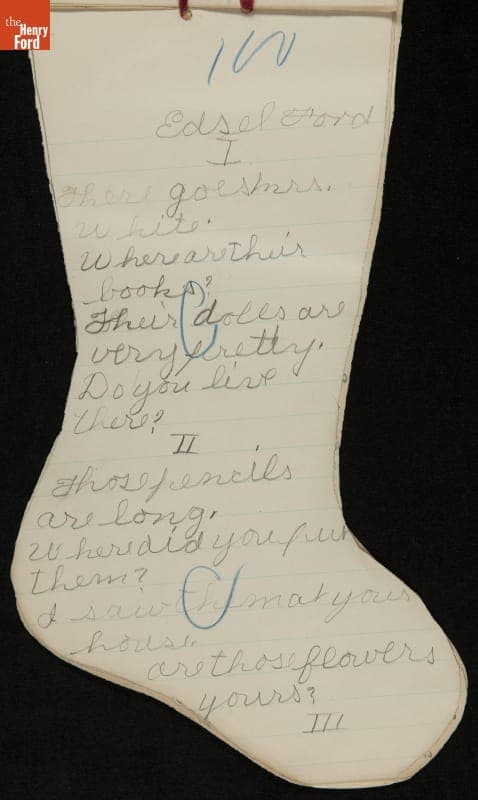 the
Henry
Ford
100
Edsel Ford
I
There goes mrs.
White.
Where are their
books?
C
Their dolls are
very pretty.
Do you live
there?
II
Those pencils
are long.
Where did you put
them?
C
I saw them at your
house.
are those flowers
yours?
III